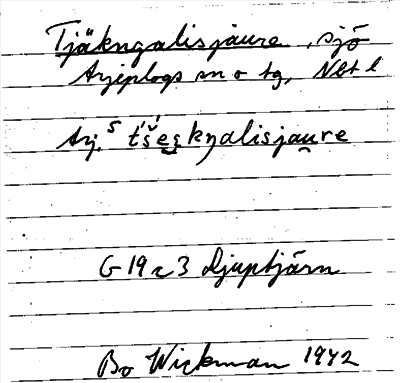 Tjäkngalisjaure, sjö
Arjeplogs sn o tg, Nbt l
Arj. S t́š́ee̮kŋalisjau̮re
G 19 r 3 Djuptjärn
Bo Wickman 1942